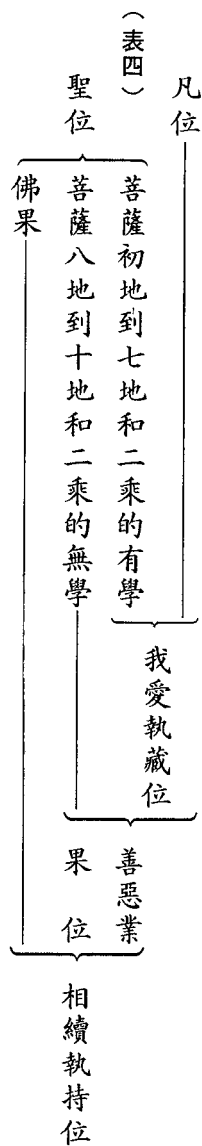 （表四）
凡位
聖位
菩薩初地到七地和二乘的有學
菩薩八地到十地和二乘的無學
佛果
我愛執藏位
善惡業
果位
相續執持位